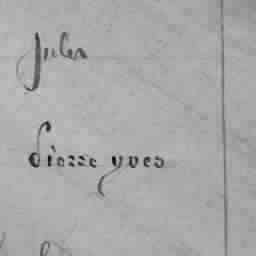 Jules
Pierre yves